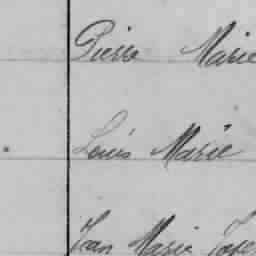 Pierre Marie
Louis Marie
Jean Marie